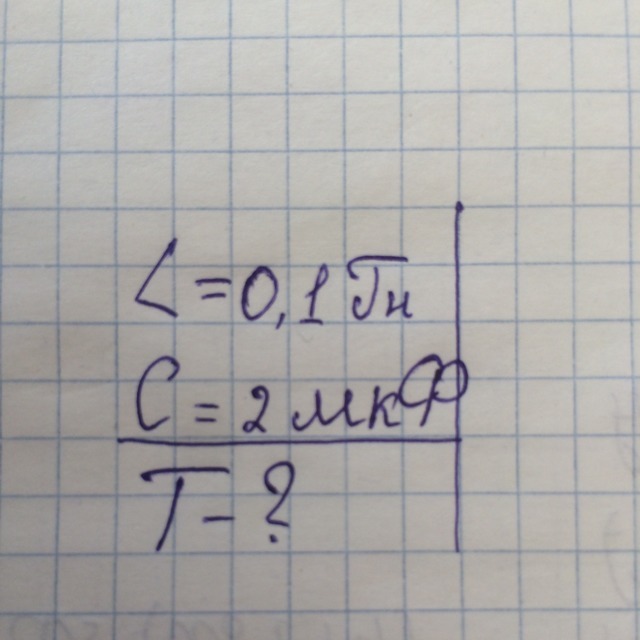 L=0,1 Гн
C=2 мкФ
T-?